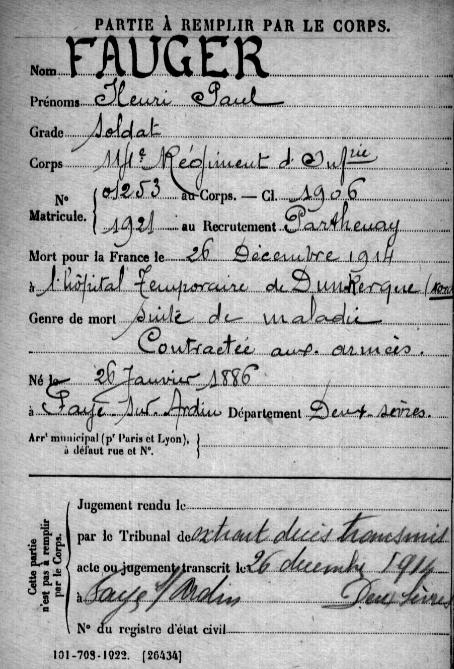 PARTIE À REMPLIR PAR LE CORPS.
Nom FAUGER
Prénoms Henri Paul
Grade Soldat
Corps 114e Régiment d'Infrie
N° Matricule. { 01253 au Corps. — Cl. 1906
1921 au Recrutement Parthenay
Mort pour la France le 26 Décembre 1914
à l'hôpital Temporaire de Dunkerque (Nord
Genre de mort suite de maladie
Contractée aux armées.
Né le 26 Janvier 1886
à Faye-sur-Ardin Département Deux-sèvres.
Arrt municipal (pr Paris et Lyon), à défaut rue et N°. }
Cette partie n'est pas à remplir par le Corps.
Jugement rendu le
par le Tribunal de extrait décès transmis
acte ou jugement transcrit le 26 decembre 1914
à Faye s/Ardin Deux Sèvres
N° du registre d'état civil
101-708-1922. [26434]